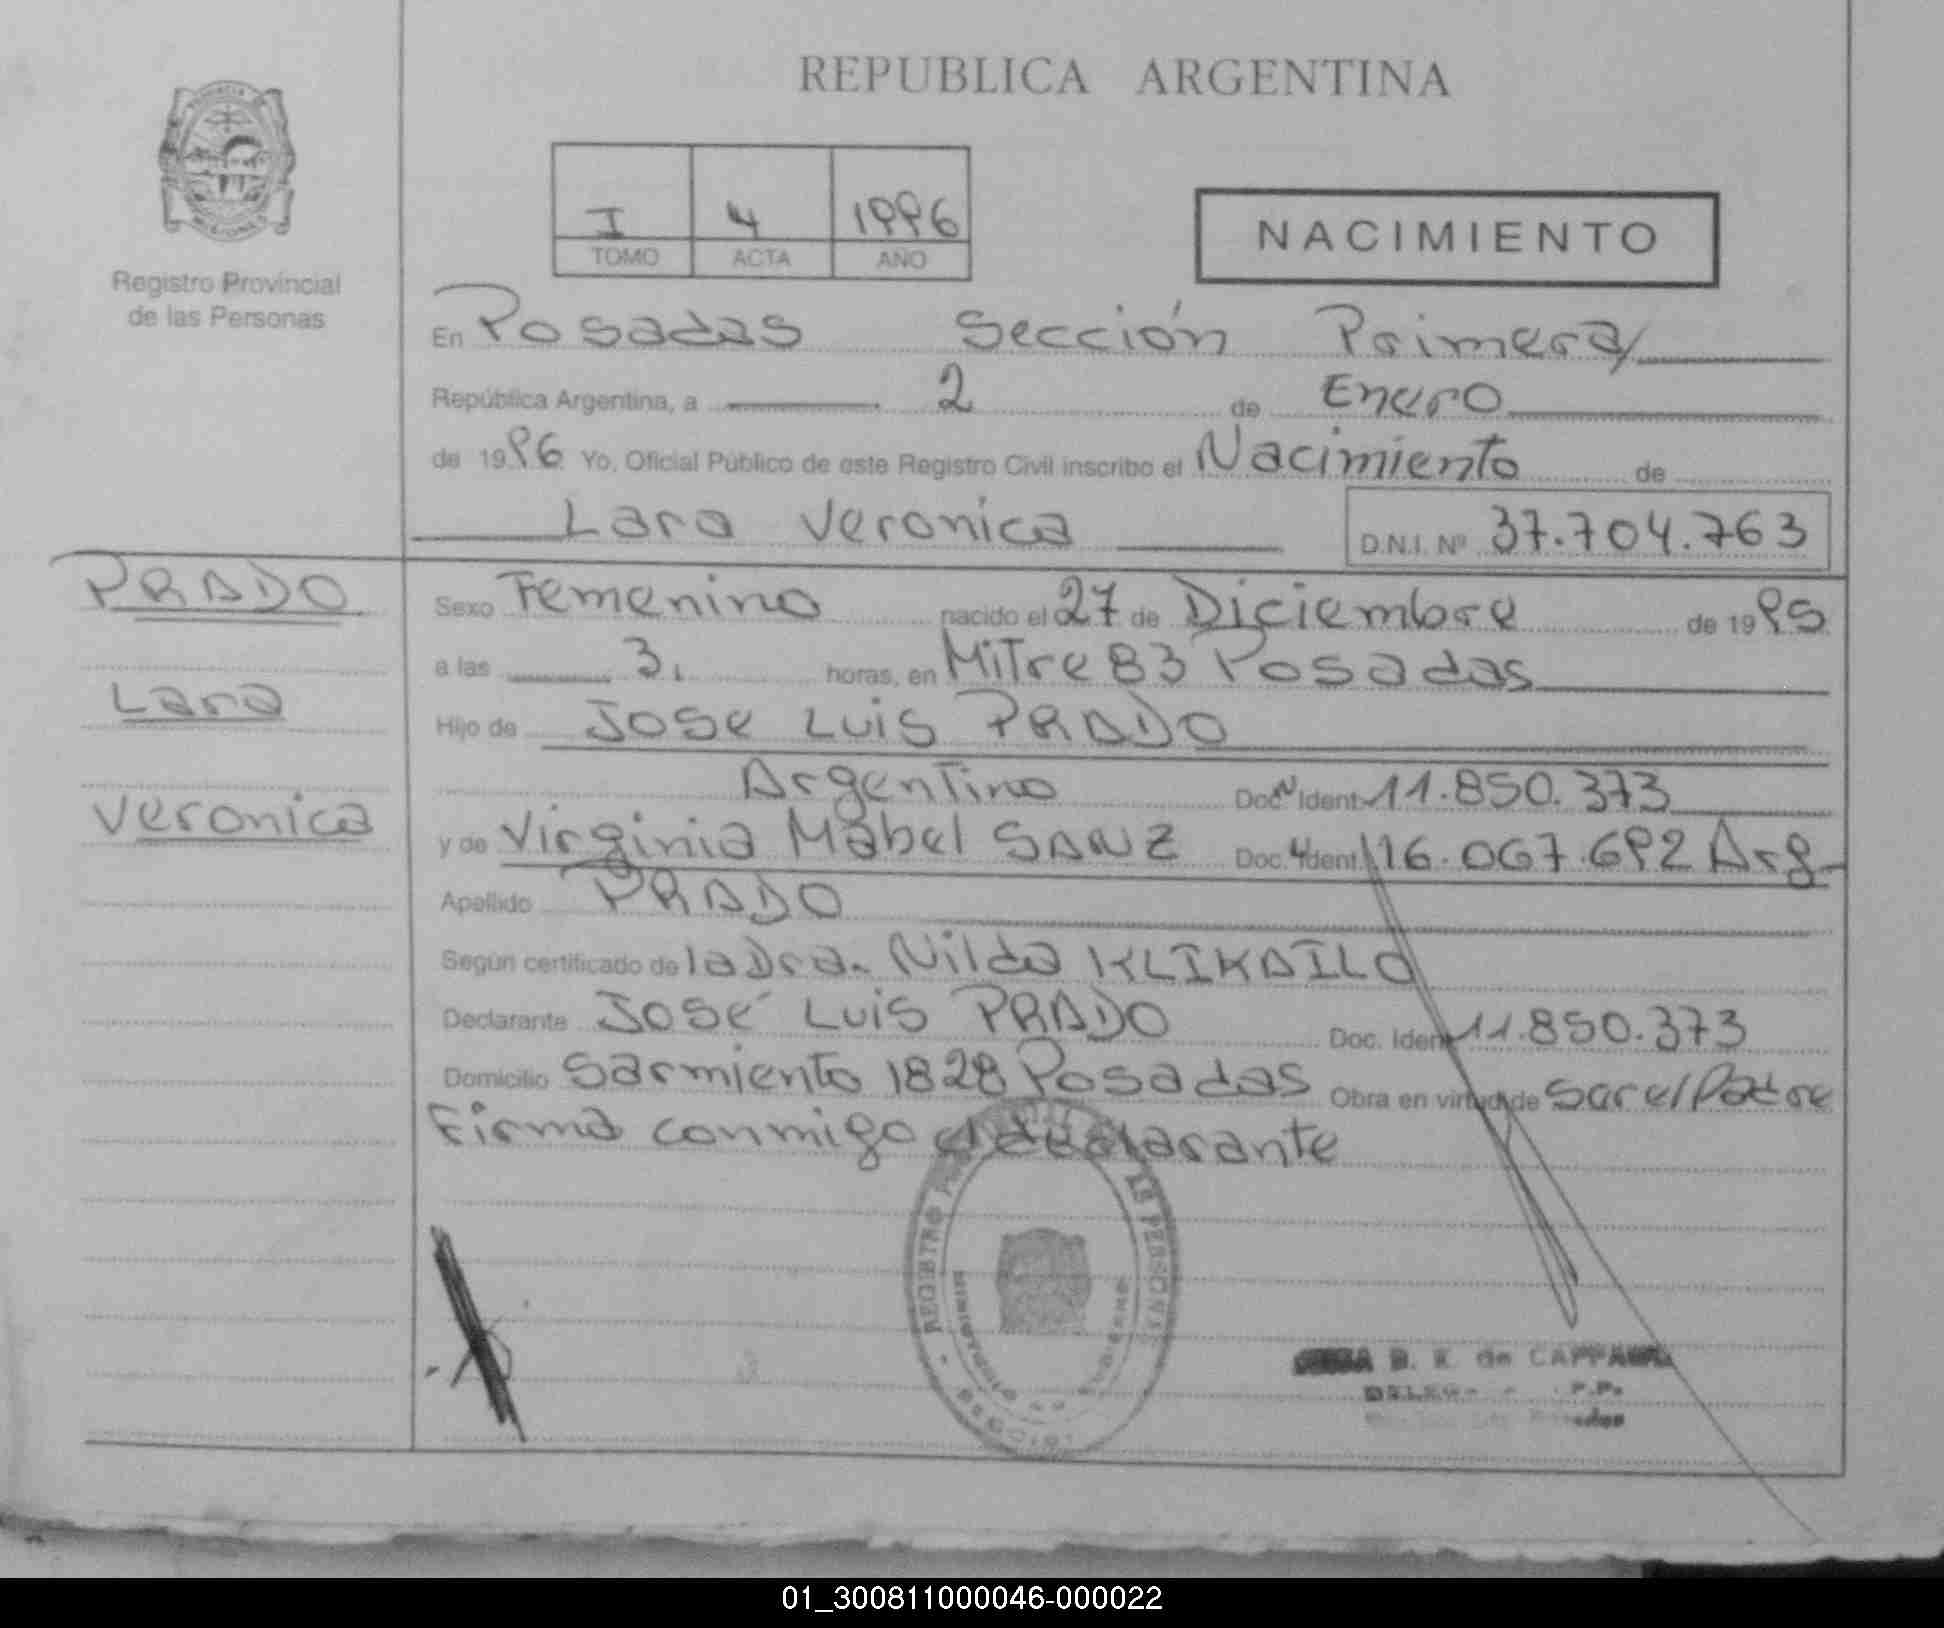 REPUBLICA ARGENTINA
I 4 1996
TOMO ACTA AÑO
NACIMIENTO
Registro Provincial
de las Personas
En Posadas Sección Primera
República Argentina, a 2 de Enero
de 1996 Yo, Oficial Público de este Registro Civil inscribo el Nacimiento de
Lara Veronica D.N.I. Nº 37.704.763
PRADO
Lara
Veronica
Sexo Femenino nacido el 27 de Diciembre de 1995
a las 3. horas, en Mitre 83 Posadas
Hijo de Jose Luis PRADO
Argentino Doc. Ident 11.850.373
y de Virginia Mabel SANZ Doc. Ident 16.067.692 Arg
Apellido PRADO
Según certificado de la Dra. Nilda KLIKAILO
Declarante José Luis PRADO Doc. Ident 11.850.373
Domicilio Sarmiento 1828 Posadas Obra en virtud de Ser el Padre
Firma conmigo el declarante
REGISTRO LAS PERSONAS
MINISTERIO DE GOBIERNO
B. K. de CAPPA
01_300811000046-000022